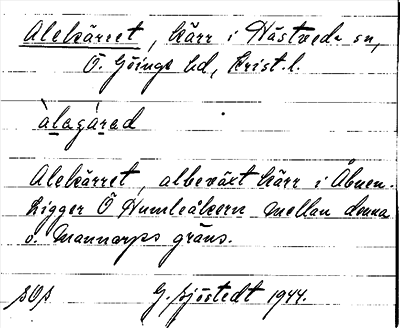 Alekärret, kärr i Hästveda sn,
Ö. Göinge hd, Krist. l.
àlaɡárad
Alekärret, albeväxt kärr i Åbuen.
Ligger Ö Humleåkern mellan denna
o. Mannarps gräns.
sOs G. Sjöstedt 1944.